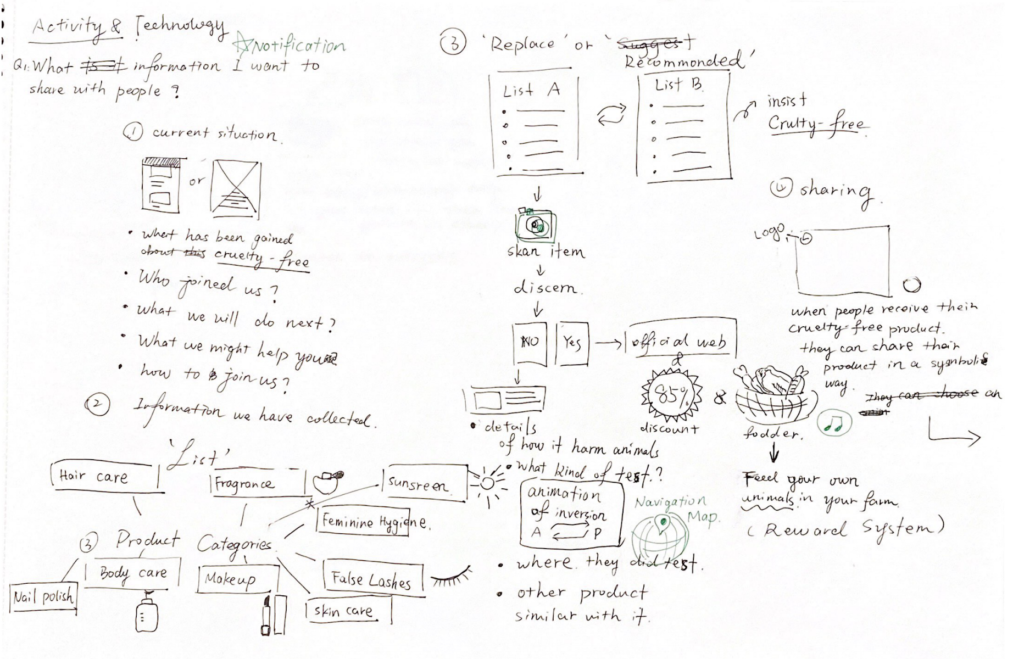 Activity & Technology
Notification
Q1. What is it information I want to
share with people ?
① current situation.
or
• what has been gained
about this cruelty-free
• Who joined us ?
• What we will do next ?
• What we might help you
• how to join us ?
② Information we have collected.
'List'
Hair care
Fragrance
Sunsreen
Feminine Hygiene.
③ Product Categories
Body care
Makeup
False Lashes
Nail polish
skin care
③ 'Replace' or 'Suggest
Recommonded'
List A
List B
insist
Crulty-free
skan item
discern
NO
Yes
official web
&
85%
discount
&
fodder.
• details
of how it harm animals
• what kind of test ?
animation
of inversion
A
P
Navigation
Map.
• where they did test.
• other product
similar with it.
Feel your own
animals in your farm
(Reward System)
④ sharing
Logo
when people receive their
cruelty-free product.
they can share their
product in a symbolis
way.
They can choose an